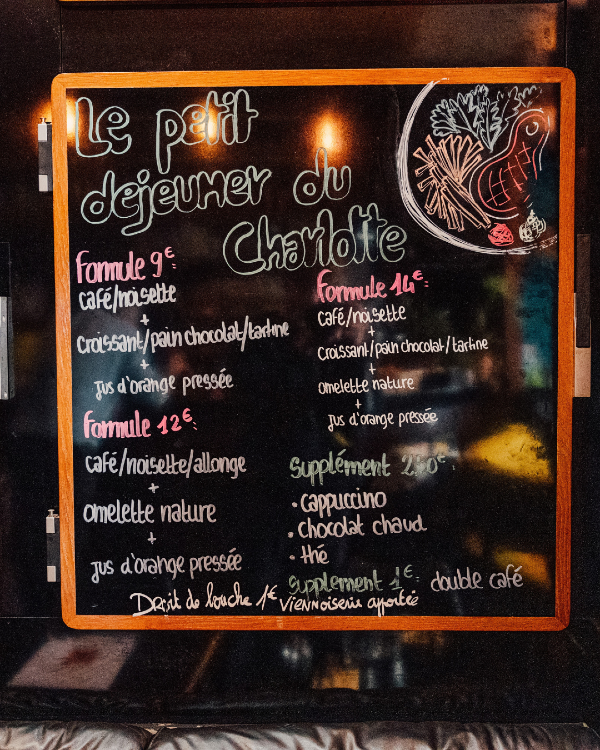 Le petit
dejeuner du
Charlotte
formule 9€:
café/noisette
+
Croissant/pain chocolat/tartine
+
jus d'orange pressée
formule 12€:
café/noisette/allonge
+
omelette nature
+
jus d'orange pressée
formule 14€:
café/noisette
+
Croissant/pain chocolat/tartine
+
omelette nature
+
jus d'orange pressée
Supplément
• cappuccino
• chocolat chaud
• thé
Supplement 1€: double café
Droit de bouche 1€ viennoiserie apportée